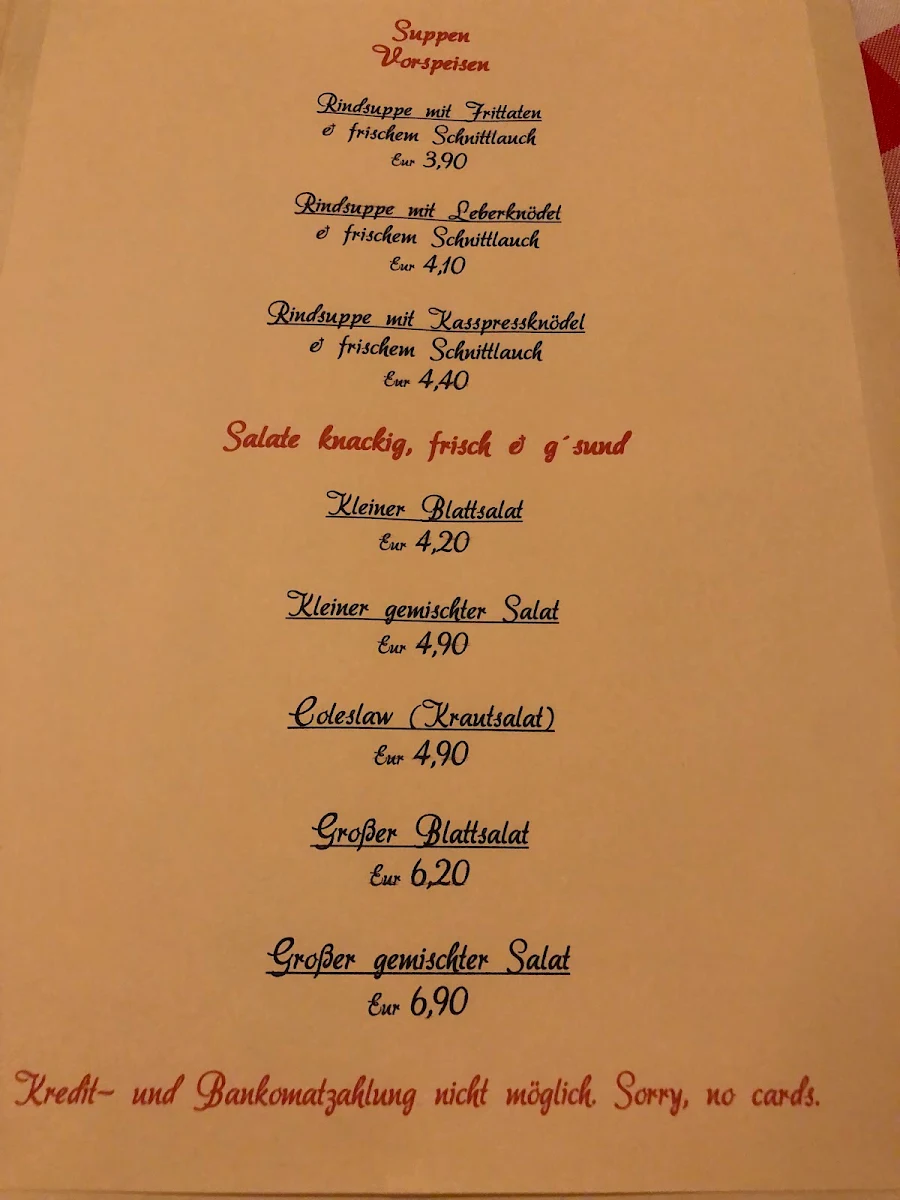 Suppen
Vorspeisen
Rindsuppe mit Frittaten
& frischem Schnittlauch
Eur 3,90
Rindsuppe mit Leberknödel
& frischem Schnittlauch
Eur 4,10
Rindsuppe mit Kasspressknödel
& frischem Schnittlauch
Eur 4,40
Salate knackig, frisch & g´sund
Kleiner Blattsalat
Eur 4,20
Kleiner gemischter Salat
Eur 4,90
Coleslaw (Krautsalat)
Eur 4,90
Großer Blattsalat
Eur 6,20
Großer gemischter Salat
Eur 6,90
Kredit- und Bankomatzahlung nicht möglich. Sorry, no cards.